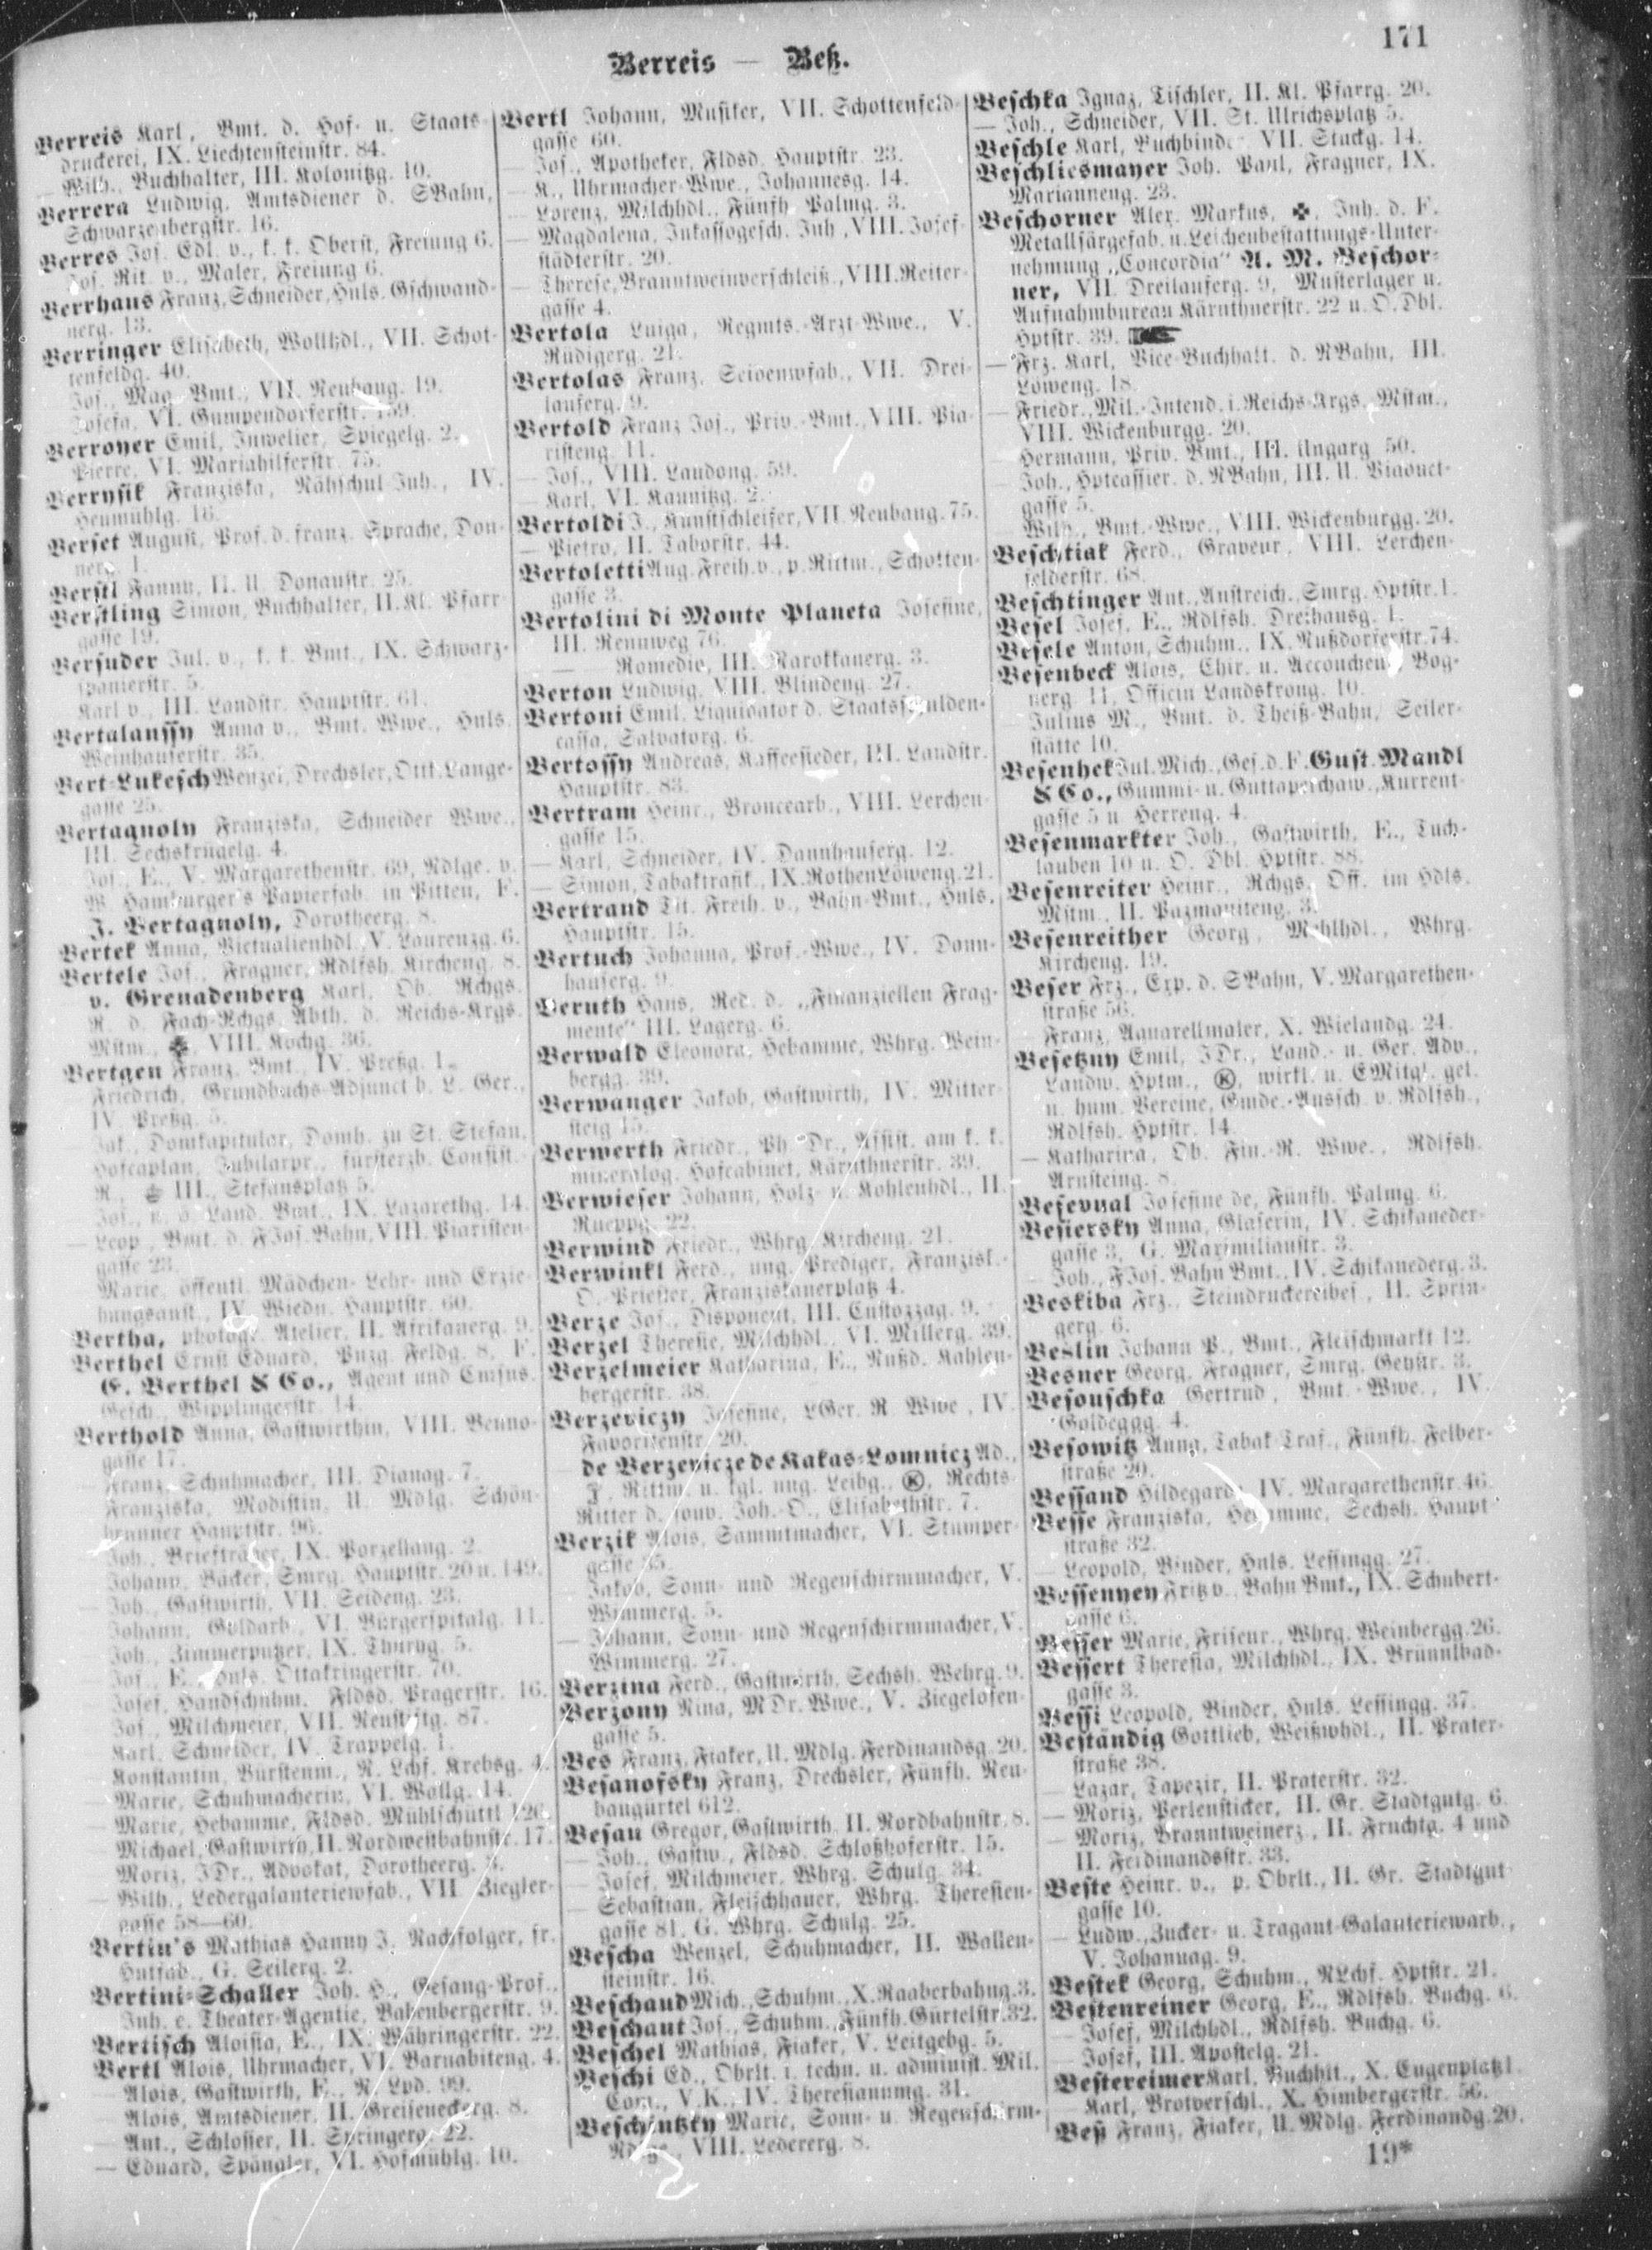 171
Berreis — Beß.
Berreis Karl, Bmt. d. Hof- u. Staats-
druckerei, IX. Liechtensteinstr. 84.
— Wilh., Buchhalter, III. Kolonitzg. 10.
Berrera Ludwig, Amtsdiener d. SBahn,
Schwarzenbergstr. 16.
Berres Jos. Edl. v., k. k. Oberst, Freiung 6.
— Jos. Rit. v., Maler, Freiung 6.
Berrhaus Franz, Schneider, Hnls. Gschwand-
nerg. 13.
Berringer Elisabeth, Wollhdl., VII. Schot-
tenfeldg. 40.
— Jos., Mag. Bmt., VII. Neubaug. 19.
— Josefa, VI. Gumpendorferstr. 159.
Berroyer Emil, Juwelier, Spiegelg. 2.
— Pierre, VI. Mariahilferstr. 75.
Berrysik Franziska, Nähschul-Inh., IV.
Heumühlg. 18.
Berset August, Prof. d. franz. Sprache, Don-
nerg. 1.
Berstl Fanny, II. U. Donaustr. 25.
Berstling Simon, Buchhalter, II. Kl. Pfarr-
gasse 19.
Bersuder Jul. v., k. k. Bmt., IX. Schwarz-
spanierstr. 5.
— Karl v., III. Landstr. Hauptstr. 61.
Bertalanffy Anna v., Bmt. Wwe., Hnls.
Weinhauserstr. 35.
Bert-Lukesch Wenzel, Drechsler, Ottk. Lange-
gasse 25.
Bertagnoly Franziska, Schneider Wwe.,
III. Sechskrügelg. 4.
— Jos., E., V. Margarethenstr. 69, Ndlge. v.
W. Hamburger's Papierfab. in Pitten, F.
J. Bertagnoly, Dorotheerg. 8.
Bertek Anna, Victualienhdl., V. Laurenzg. 6.
Bertele Jos., Fragner, Rdlfsh. Kircheng. 8.
— v. Grenadenberg Karl, Ob. Rchgs.
R. d. Fach-Rchgs. Abth. d. Reichs-Krgs.
Mstm., ✠, VIII. Kochg. 36.
Bertgen Franz, Bmt., IV. Preßg. 1.
— Friedrich, Grundbuchs-Adjunct b. L. Ger.,
IV. Preßg. 5.
— Jak., Domkapitular, Domh. zu St. Stefan,
Hofcaplan, Jubilarpr., fürsterzb. Consist.-
R., III., Stefansplatz 5.
— Jos., n. ö. Land. Bmt., IX. Lazarethg. 14.
— Leop., Bmt. d. FJos. Bahn, VIII. Piaristen-
gasse 23.
— Marie, öffentl. Mädchen- Lehr- und Erzie-
hungsanst., IV. Wiedn. Hauptstr. 60.
Bertha, photogr. Atelier, II. Afrikanerg. 9.
Berthel Ernst Eduard, Pnzg. Feldg. 8, F.
E. Berthel & Co., Agent und
Gesch., Wipplingerstr. 14.
Berthold Anna, Gastwirthin, VIII. Benno-
gasse 17.
— Franz, Schuhmacher, III. Dianag. 7.
— Franziska, Modistin, U. Mdlg. Schön-
brunner Hauptstr. 96.
— Joh., Briefträger, IX. Porzellang. 2.
— Johann, Bäcker, Smrg. Hauptstr. 20 u. 149.
— Joh., Gastwirth, VII. Seideng. 23.
— Johann, Goldarb., VI. Bürgerspitalg. 11.
— Joh., Zimmerputzer, IX. Thuryg. 5.
— Jos., E., Hnls. Ottakringerstr. 70.
— Josef, Handschuhm., Fldsd. Pragerstr. 16.
— Jos., Milchmeier, VII. Neustiftg. 87.
— Karl, Schneider, IV. Trappelg. 1.
— Konstantin, Bürstenm., N. Lchf. Krebsg. 4.
— Marie, Schuhmacherin, VI. Wallg. 14.
— Marie, Hebamme, Fldsd. Mühlschüttl 126.
— Michael, Gastwirth, II. Nordwestbahnstr. 17.
— Moriz, JDr., Advokat, Dorotheerg.
— Wilh., Ledergalanteriewfab., VII. Ziegler-
gasse 58—60.
Bertin's Mathias Hanny J. Nachfolger, fr.
Hutfab., G. Seilerg. 2.
Bertini-Schaller Joh. H., Gesang-Prof.,
Inh. e. Theater-Agentie, Babenbergerstr. 9.
Bertisch Aloisia, E., IX. Währingerstr. 22.
Bertl Alois, Uhrmacher, VI. Barnabiteng. 4.
— Alois, Gastwirth, E., N. Lpd. 99.
— Alois, Amtsdiener, II. Greiseneckerg. 8.
— Ant., Schlosser, II. Springerg. 22.
— Eduard, Spängler, VI. Hofmühlg. 10.
Bertl Johann, Musiker, VII. Schottenfeld-
gasse 60.
— Jos., Apotheker, Fldsd. Hauptstr. 23.
— K., Uhrmacher-Wwe., Johannesg. 14.
— Lorenz, Milchhdl., Fünfh. Palmg. 3.
— Magdalena, Inkassogesch. Inh., VIII. Josef-
städterstr. 20.
— Therese, Branntweinverschleiß., VIII. Reiter-
gasse 4.
Bertola Luiga, Regmts.-Arzt-Wwe., V.
Rüdigerg. 21.
Bertolas Franz, Seidenwfab., VII. Drei-
lauferg. 9.
Bertold Franz Jos., Priv.-Bmt., VIII. Pia-
risteng. 11.
— Jos., VIII. Laudong. 59.
— Karl, VI. Kaunitzg. 2.
Bertoldi J., Kunstschleifer, VII. Neubaug. 75.
— Pietro, II. Taborstr. 44.
Bertoletti Aug. Freih. v., p. Rittm., Schotten-
gasse 3.
Bertolini di Monte Planeta Josefine,
III. Rennweg 76.
— — Romedio, III. Marokkanerg. 3.
Berton Ludwig, VIII. Blindeng. 27.
Bertoni Emil, Liquidator d. Staatsschulden-
cassa, Salvatorg. 6.
Bertossy Andreas, Kaffeesieder, III. Landstr.
Hauptstr. 83.
Bertram Heinr., Broncearb., VIII. Lerchen-
gasse 15.
— Karl, Schneider, IV. Dannhauserg. 12.
— Simon, Tabaktrafik., IX. RothenLöweng. 21.
Bertrand Tit. Freih. v., Bahn-Bmt., Hnls.
Hauptstr. 15.
Bertuch Johanna, Prof.-Wwe., IV. Dann-
hauserg. 9.
Beruth Hans, Red. d. „Finanziellen Frag-
mente" III. Lagerg. 6.
Berwald Eleonora, Hebamme, Whrg. Wein-
bergg. 39.
Berwanger Jakob, Gastwirth, IV. Mitter-
steig 15.
Berwerth Friedr., Ph. Dr., Assist. am k. k.
mineralog. Hofcabinet, Kärnthnerstr. 39.
Berwieser Johann, Holz- u. Kohlenhdl., II.
Rueppg. 22.
Berwind Friedr., Whrg. Kircheng. 21.
Berwinkl Ferd., ung. Prediger, Franzisk.-
O. Priester, Franziskanerplatz 4.
Berze Jos., Disponent, III. Custozzag. 9.
Berzel Theresie, Milchhdl., VI. Millerg. 39.
Berzelmeier Katharina, E., Nußd. Kahlen-
bergerstr. 38.
Berzeviczy Josefine, LGer. R. Wwe., IV.
Favoritenstr. 20.
— de Berzevicze de Kakas-Lomnicz Ad.,
F. Rittm. u. kgl. ung. Leibg., Ⓚ, Rechts-
Ritter d. souv. Joh.-O., Elisabethstr. 7.
Berzik Alois, Sammtmacher, VI. Stumper-
gasse
— Jakob, Sonn- und Regenschirmmacher, V.
Wimmerg. 5.
— Johann, Sonn- und Regenschirmmacher, V.
Wimmerg. 27.
Berzina Ferd., Gastwirth, Sechsh. Wehrg. 9.
Berzony Nina, MDr. Wwe., V. Ziegelofen-
gasse 5.
Bes Franz, Fiaker, U. Mdlg. Ferdinandsg. 20.
Besanofsky Franz, Drechsler, Fünfh. Neu-
baugürtel 612.
Besau Gregor, Gastwirth, II. Nordbahnstr. 8.
— Joh., Gastw., Fldsd. Schloßhoferstr. 15.
— Josef, Milchmeier, Whrg. Schulg. 34.
— Sebastian, Fleischhauer, Whrg. Theresien-
gasse 81, G. Whrg. Schulg. 25.
Bescha Wenzel, Schuhmacher, II. Wallen-
steinstr. 16.
Beschaud Mich., Schuhm., X. Raaberbahng. 3.
Beschaut Jos., Schuhm., Fünfh. Gürtelstr. 32.
Beschel Mathias, Fiaker, V. Leitgebg. 5.
Beschi Ed., Obrlt. i. techn. u. administ. Mil.
Com., V. K., IV. Theresianumg. 31.
Beschintzky Marie, Sonn- u. Regenschirm-
VIII. Ledererg. 8.
Beschka Ignaz, Tischler, II. Kl. Pfarrg. 20.
— Joh., Schneider, VII. St. Ulrichsplatz 5.
Beschle Karl, Buchbind., VII. Stuckg. 14.
Beschliesmayer Joh. Paul, Fragner, IX.
Marianneng. 23.
Beschorner Alex. Markus, ✠, Inh. d. F.
Metallsärgefab. u. Leichenbestattungs-Unter-
nehmung „Concordia" A. M. Beschor-
ner, VII. Dreilauferg. 9, Musterlager u.
Aufnahmbureau Kärnthnerstr. 22 u. O. Dbl.
Hptstr. 39.
— Frz. Karl, Vice-Buchhalt. d. NBahn, III.
Löweng. 18.
— Friedr., Mil.-Intend. i. Reichs-Krgs. Mstm.,
VIII. Wickenburgg. 20.
— Hermann, Priv. Bmt., III. Ungarg. 50.
— Joh., Hptcassier. d. NBahn, III. U. Viaduct-
gasse 5.
— Wilh., Bmt.-Wwe., VIII. Wickenburgg. 20.
Beschtiak Ferd., Graveur, VIII. Lerchen-
felderstr. 68.
Beschtinger Ant., Anstreich., Smrg. Hptstr. 1.
Besel Josef, E., Rdlfsh. Dreihausg. 1.
Besele Anton, Schuhm., IX. Nußdorferstr. 74.
Besenbeck Alois, Chir. u. Accoucheur, Bog-
nerg. 11, Officin Landskrong. 10.
— Julius M., Bmt. d. Theiß-Bahn, Seiler-
stätte 10.
Besenhek Jul. Mich., Ges. d. F. Gust. Mandl
& Co., Gummi- u. Guttaperchaw., Kurrent-
gasse 5 u. Herreng. 4.
Besenmarkter Joh., Gastwirth, E., Tuch-
lauben 10 u. O. Dbl. Hptstr. 88.
Besenreiter Heinr., Rchgs. Off. im Hdls.
Mstm., II. Pazmaniteng. 3.
Besenreither Georg, Mehlhdl., Whrg.
Kircheng. 19.
Beser Frz., Exp. d. SBahn, V. Margarethen-
straße 56.
— Franz, Aquarellmaler, X. Wielandg. 24.
Besetzny Emil, JDr., Land.- u. Ger. Adv.,
Landw. Hptm., Ⓚ, wirkl. u. EMitgl. gel.
u. hum. Vereine, Gmde.-Aussch. v. Rdlfsh.,
Rdlfsh. Hptstr. 14.
— Katharina, Ob. Fin.-R. Wwe., Rdlfsh.
Arnsteing. 8.
Besevnal Josefine de, Fünfh. Palmg. 6.
Besiersky Anna, Glaserin, IV. Schikaneder-
gasse 3, G. Maximilianstr. 3.
— Joh., FJos. Bahn Bmt., IV. Schikanederg. 3.
Beskiba Frz., Steindruckereibes., II. Sprin-
gerg. 6.
Beslin Johann P., Bmt., Fleischmarkt 12.
Besner Georg, Fragner, Smrg. Geystr. 3.
Besouschka Gertrud, Bmt.-Wwe., IV.
Goldeggg. 4.
Besowitz Anna, Tabak Traf., Fünfh. Felber-
straße 20.
Bessand Hildegard, IV. Margarethenstr. 46.
Besse Franziska, Hebamme, Sechsh. Haupt-
straße 32.
— Leopold, Binder, Hnls. Lessingg. 27.
Bessenyey Fritz v., Bahn Bmt., IX. Schubert-
gasse 6.
Besser Marie, Friseur., Whrg. Weinbergg. 26.
Bessert Theresia, Milchhdl., IX. Brünnlbad-
gasse 3.
Bessi Leopold, Binder, Hnls. Lessingg. 37.
Beständig Gottlieb, Weißwhdl., II. Prater-
straße 38.
— Lazar, Tapezir, II. Praterstr. 32.
— Moriz, Perlensticker, II. Gr. Stadtgutg. 6.
— Moriz, Branntweinerz., II. Fruchtg. 4 und
II. Ferdinandsstr. 33.
Beste Heinr. v., p. Obrlt., II. Gr. Stadtgut-
gasse 10.
— Ludw., Zucker- u. Tragant-Galanteriewarb.,
V. Johannag. 9.
Bestek Georg, Schuhm., NLchf. Hptstr. 21.
Bestenreiner Georg, E., Rdlfsh. Buchg. 6.
— Josef, Milchhdl., Rdlfsh. Buchg. 6.
— Josef, III. Apostelg. 21.
Bestereimer Karl, Buchhlt., X. Eugenplatz 1.
— Karl, Brotverschl., X. Himbergerstr. 56.
Beß Franz, Fiaker, U. Mdlg. Ferdinandg. 20.
19*